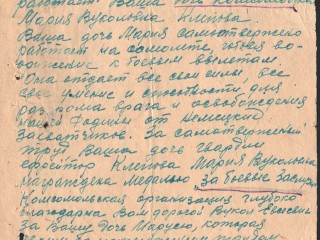 работает Ваша дочь комсомолка
Мария Вуколовна Клепова.
Ваша дочь Мария самоотвержено
работает на самолете, готовя во-
оружение к боевым вылетам
Она отдает все свои силы, все
свое умение и способности для
разгрома врага и освобождения
нашей Родины от немецких
захватчиков. За самоотверженный
труд Ваша дочь гвардии
ефрейтор Клепова Мария Вуколовна
награждена медалью За боевые заслуги
Комсомольская организация глубоко
благодарна Вам дорогой Вукол Евсеевич
за Вашу дочь Марусю, которая